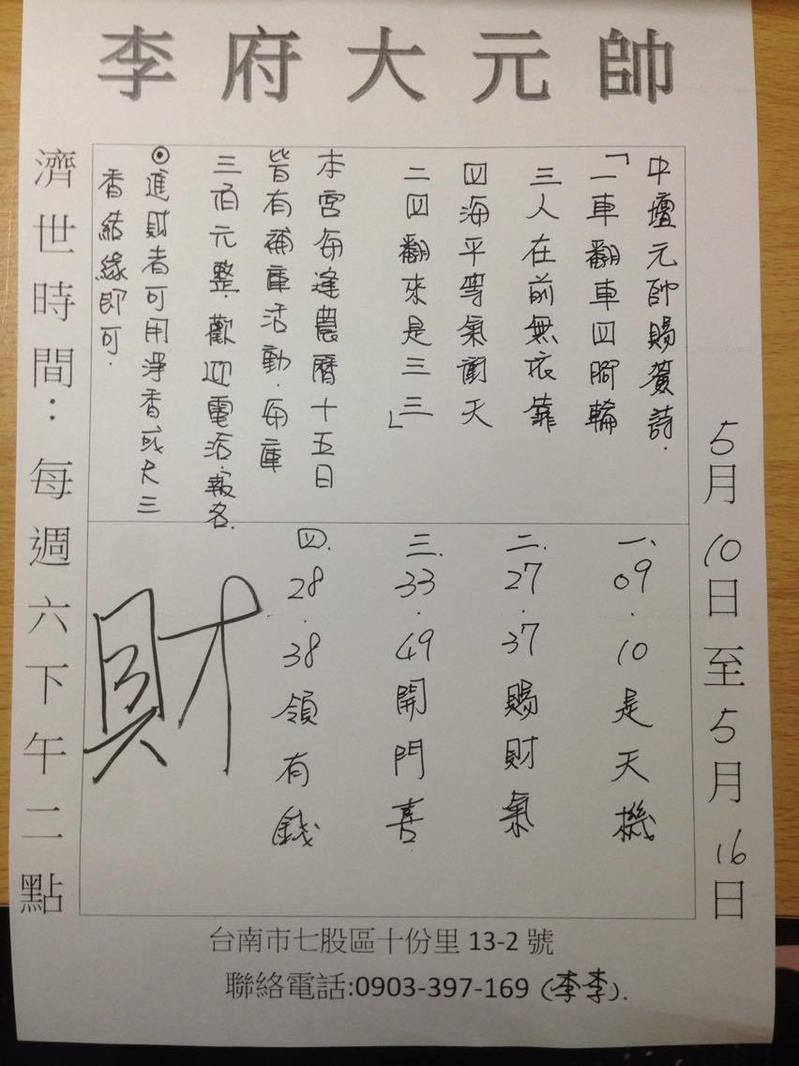 李府大元帥
5月10日至5月16日
中壇元帥賜贊詩.
「一車翻車四腳輪
三人在前無依靠
四海平等氣衝天
二四翻來是三三」
本宮每逢農曆十五日
皆有補庫活動.每庫
三佰元整.歡迎電洽.報名.
⊙進財者可用淨香或尺三
香結緣即可.
一、09.10是天機
二.27.37賜財氣
三.33.49開門喜
四.28.38領有錢
財
濟世時間:每週六下午二點
台南市七股區十份里 13-2 號
聯絡電話:0903-397-169 (李李).